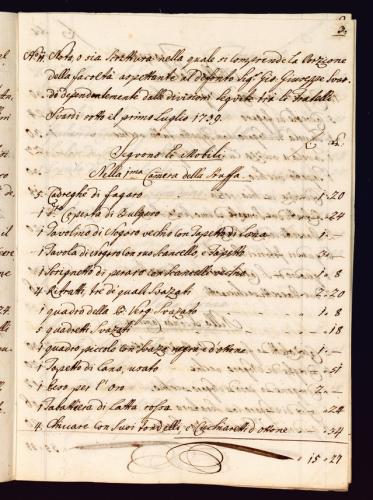 3.
Nota, o sia Scrittura nella quale si comprende la Porzione
della facoltà aspettante al defonto Sig.r Gio. Giuseppe Svar
do dependentemente dalle divisioni seguite tra li fratelli
Svardi sotto il primo Luglio 1739.
Seguono li Mobili
Nella p.ma Camera della Staffa.
5. Cadreghe di fagaro 1.20
1 Coperta di .24
1 Tavolino di Nogara vechio con Tapeto di Lana 1.-
1 Tavola di Nogaro con suo , e Tapetto
1 Scrigneto di peraro con vechio 1.8
4 Ritratti, tre di quali Svazati 2.20
1 quadro della B. Verg. Svazato 1.8
5 quadreti Svazati .18
1 quadro picolo con Svaze negre e d'ottone 1.-
1 Tapetto di Lana, usato .51
1 peso per l'oro 2.-
1 Tabachiera di Latta rossa .24
4. Chicare con suoi Tondelli, e Cuchiaretti d'ottone .34
15.27